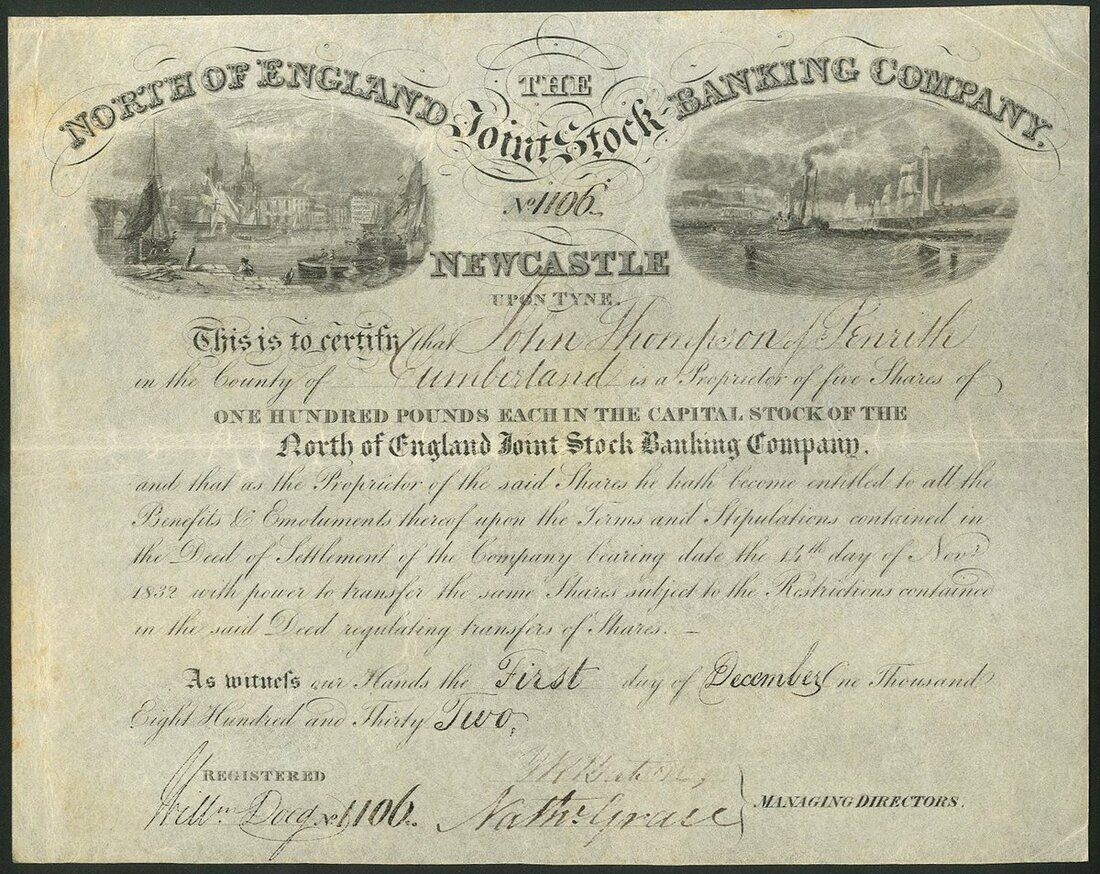 THE
NORTH OF ENGLAND Joint Stock BANKING COMPANY.
No. 1106
NEWCASTLE
UPON TYNE.
This is to certify that John Thompson of Penrith
in the County of Cumberland is a Proprietor of five Shares of
ONE HUNDRED POUNDS EACH IN THE CAPITAL STOCK OF THE
North of England Joint Stock Banking Company,
and that as the Proprietor of the said Shares he hath become entitled to all the
Benefits & Emoluments thereof upon the Terms and Stipulations contained in
the Deed of Settlement of the Company bearing date the 14th day of Novr
1832 with power to transfer the same Shares subject to the Restrictions contained
in the said Deed regulating transfers of Shares. —
As witness our Hands the First day of December One Thousand
Eight Hundred and Thirty Two,
REGISTERED
Willm No. 1106
Nathl Grace
MANAGING DIRECTORS.